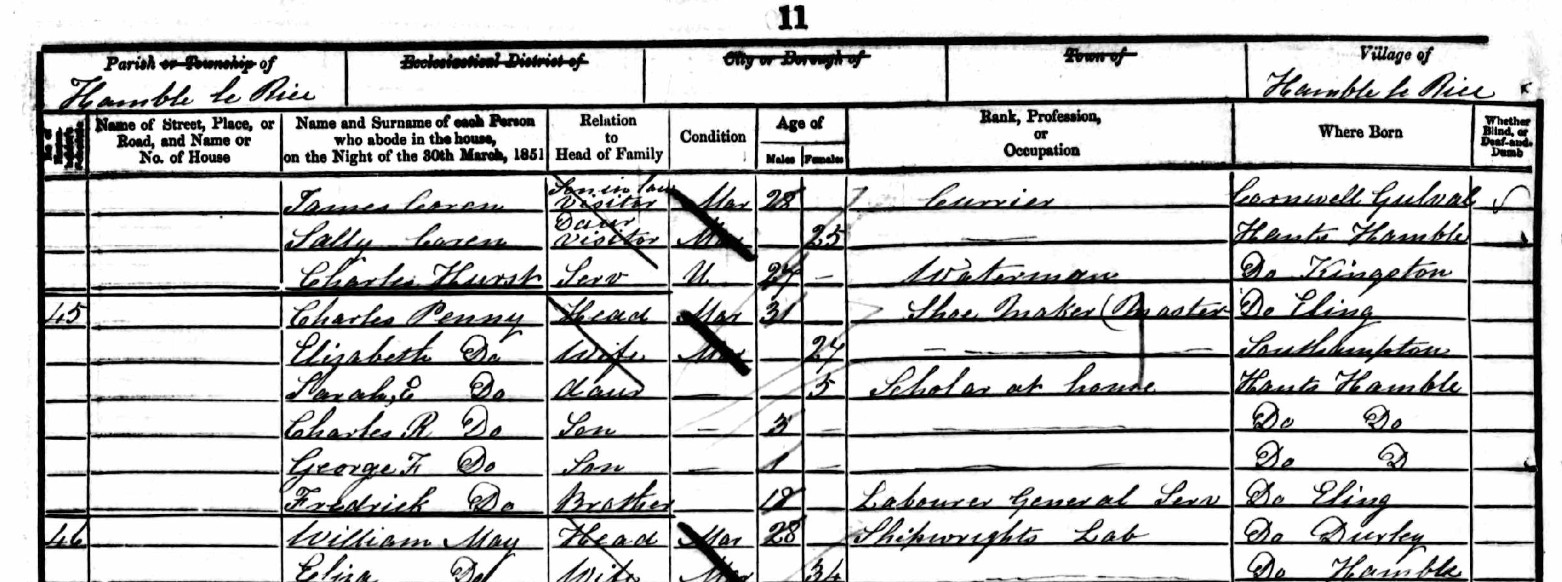 11
Parish or Township of Ecclesiastical District of City or Borough of Town of Village of
Hamble le Rice Hamble le Rice
Name of Street, Place, or Road, and Name or No. of House
Name and Surname of each Person who abode in the house, on the Night of the 30th March, 1851
Relation to Head of Family
Condition
Age of
Males Females
Rank, Profession, or Occupation
Where Born
Whether Blind, or Deaf-and-Dumb
James Coren Son in law Visitor Mar 28 Currier Cornwell Gulval
Sally Coren Daur Visitor Mar 25 Hants Hamble
Charles Hurst Serv U 27 Waterman Do Kingston
45 Charles Penny Head Mar 31 Shoe Maker (Master Do Eling
Elizabeth Do Wife Mar 27 Southampton
Sarah, E Do daur 5 Scholar at home Hants Hamble
Charles R Do Son 3 Do Do
George F Do Son 1 Do D
Fredrick Do Brother 18 Labourer General Serv Do Eling
46 William May Head Mar 28 Shipwrights Lab Do Durley
Eliza Do Wife Mar 34 Do Hamble